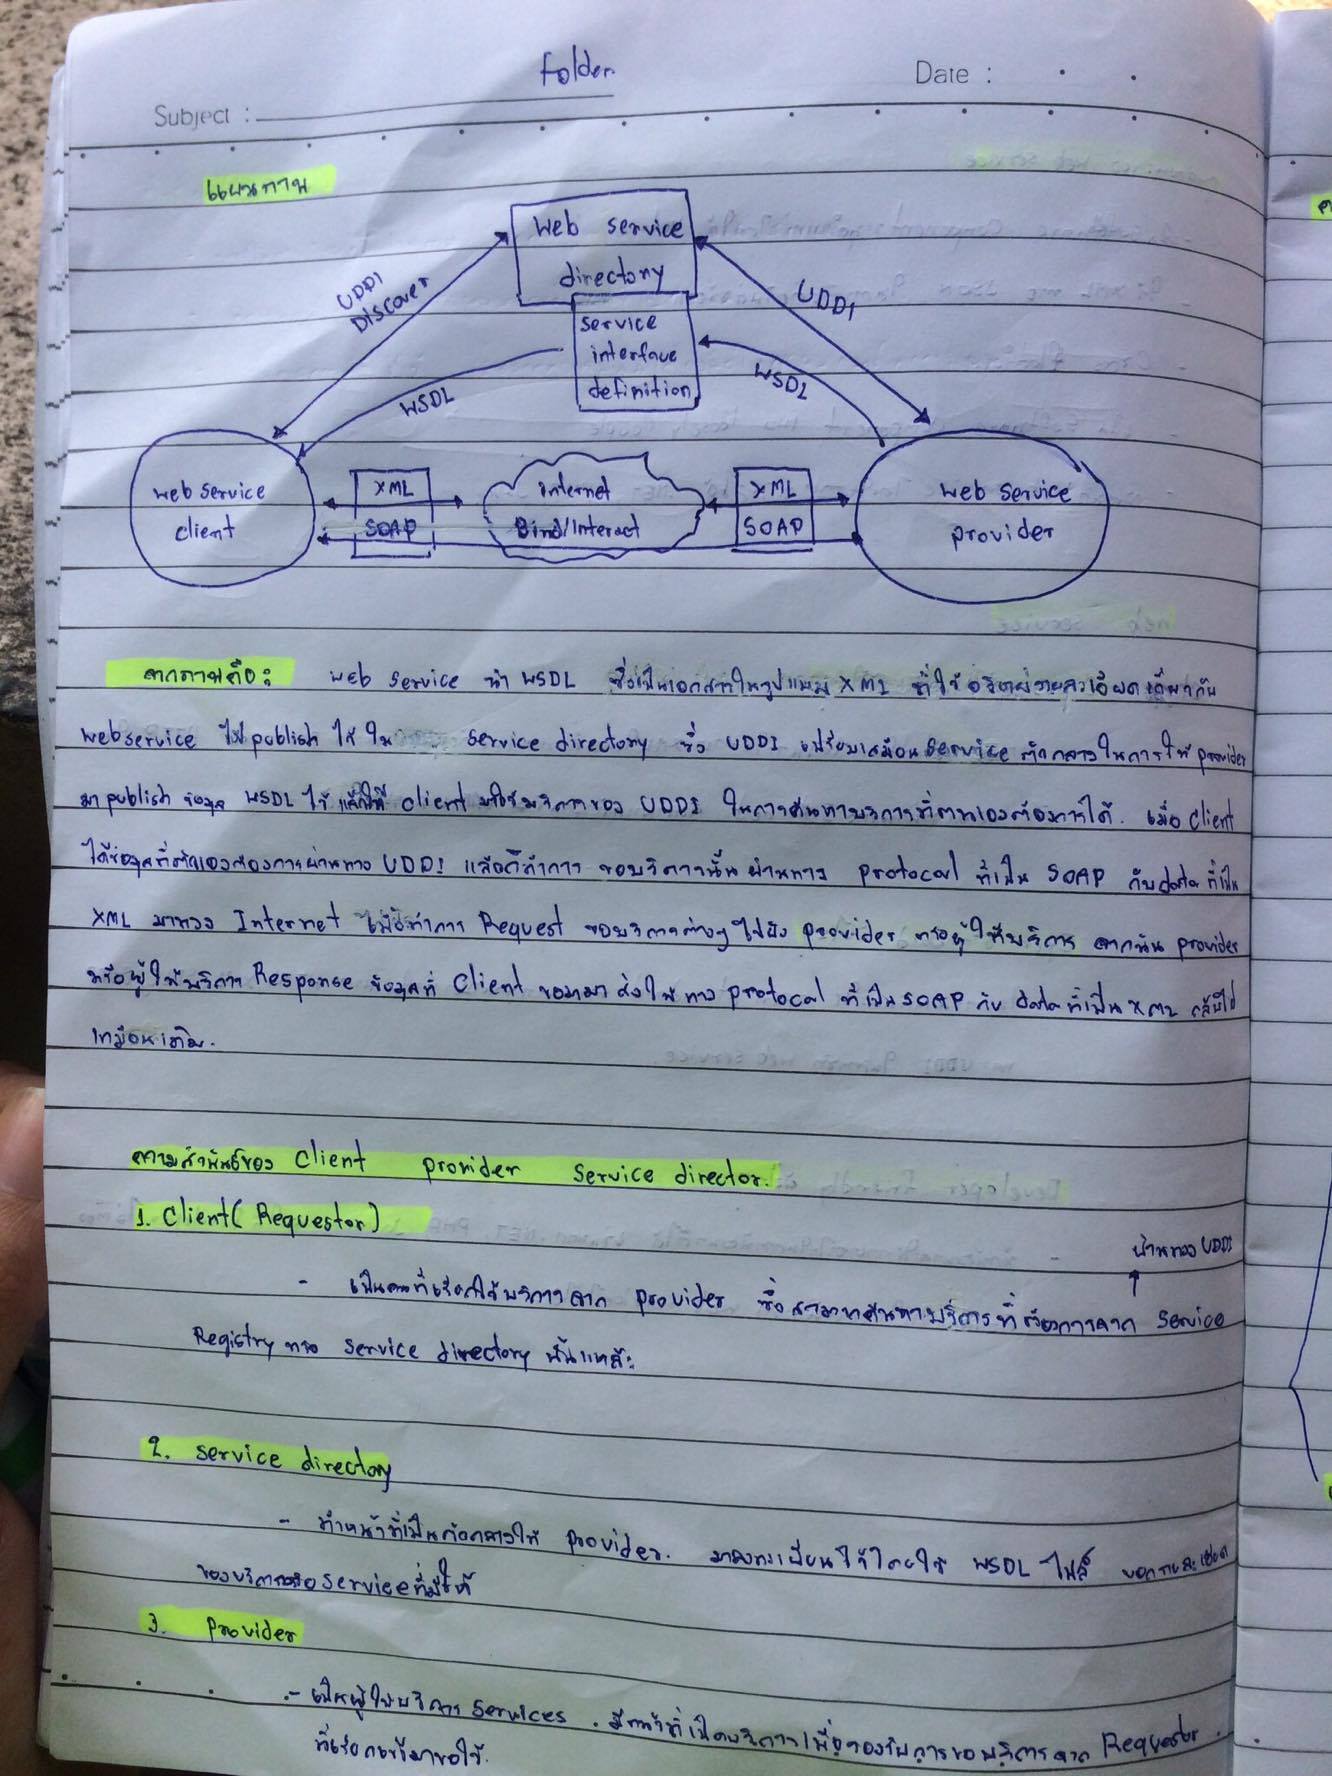 Folder.
Subject :
Date :
แผนภาพ
Web service
directory
UDDI
Discover
UDDI
service
interface
definition
WSDL
WSDL
web service
client
XML
SOAP
internet
Bind/Interact
XML
SOAP
web service
provider
จากภาพคือ: web service นำ WSDL ซึ่งเป็นเอกสารในรูปแบบ XML ที่ใช้อธิบายรายละเอียดเกี่ยวกับ
webservice ไป publish ไว้ใน service directory ซึ่ง UDDI เปรียบเสมือน service ตัวกลางในการให้ provider
มา publish ข้อมูล WSDL ไว้ แล้วให้ client มาใช้บริการของ UDDI ในการค้นหาบริการที่ตนเองต้องการได้. เมื่อ client
ได้ข้อมูลที่ตัวเองต้องการผ่านทาง UDDI แล้วก็ทำการ ขอบริการนั้นผ่านทาง protocal ที่เป็น SOAP กับ data ที่เป็น
XML มาทาง Internet เพื่อทำการ Request ขอบริการต่างๆ ไปยัง provider หรือผู้ให้บริการ จากนั้น provider
หรือผู้ให้บริการ Response ข้อมูลที่ client ขอมา ส่งให้ทาง protocal ที่เป็น SOAP กับ data ที่เป็น XML กลับไป
เหมือนเดิม.
ความสัมพันธ์ของ client provider service director.
1. Client( Requestor )
ผ่านทาง UDDI
- เป็นคนที่เรียกใช้บริการจาก provider ซึ่งสามารถค้นหาบริการที่ต้องการจาก service
Registry หรือ service directory นั้นแหล่ะ
2. service directory
- ทำหน้าที่เป็นตัวกลางให้ provider. มาลงทะเบียนไว้โดยใช้ WSDL ไฟล์ บอกรายละเอียด
ของบริการหรือ service ที่มีให้
3. provider
- เป็นผู้ให้บริการ services . มีหน้าที่เปิดบริการเพื่อรองรับการขอบริการจาก Requestor
ที่เรียกเข้ามาขอใช้.